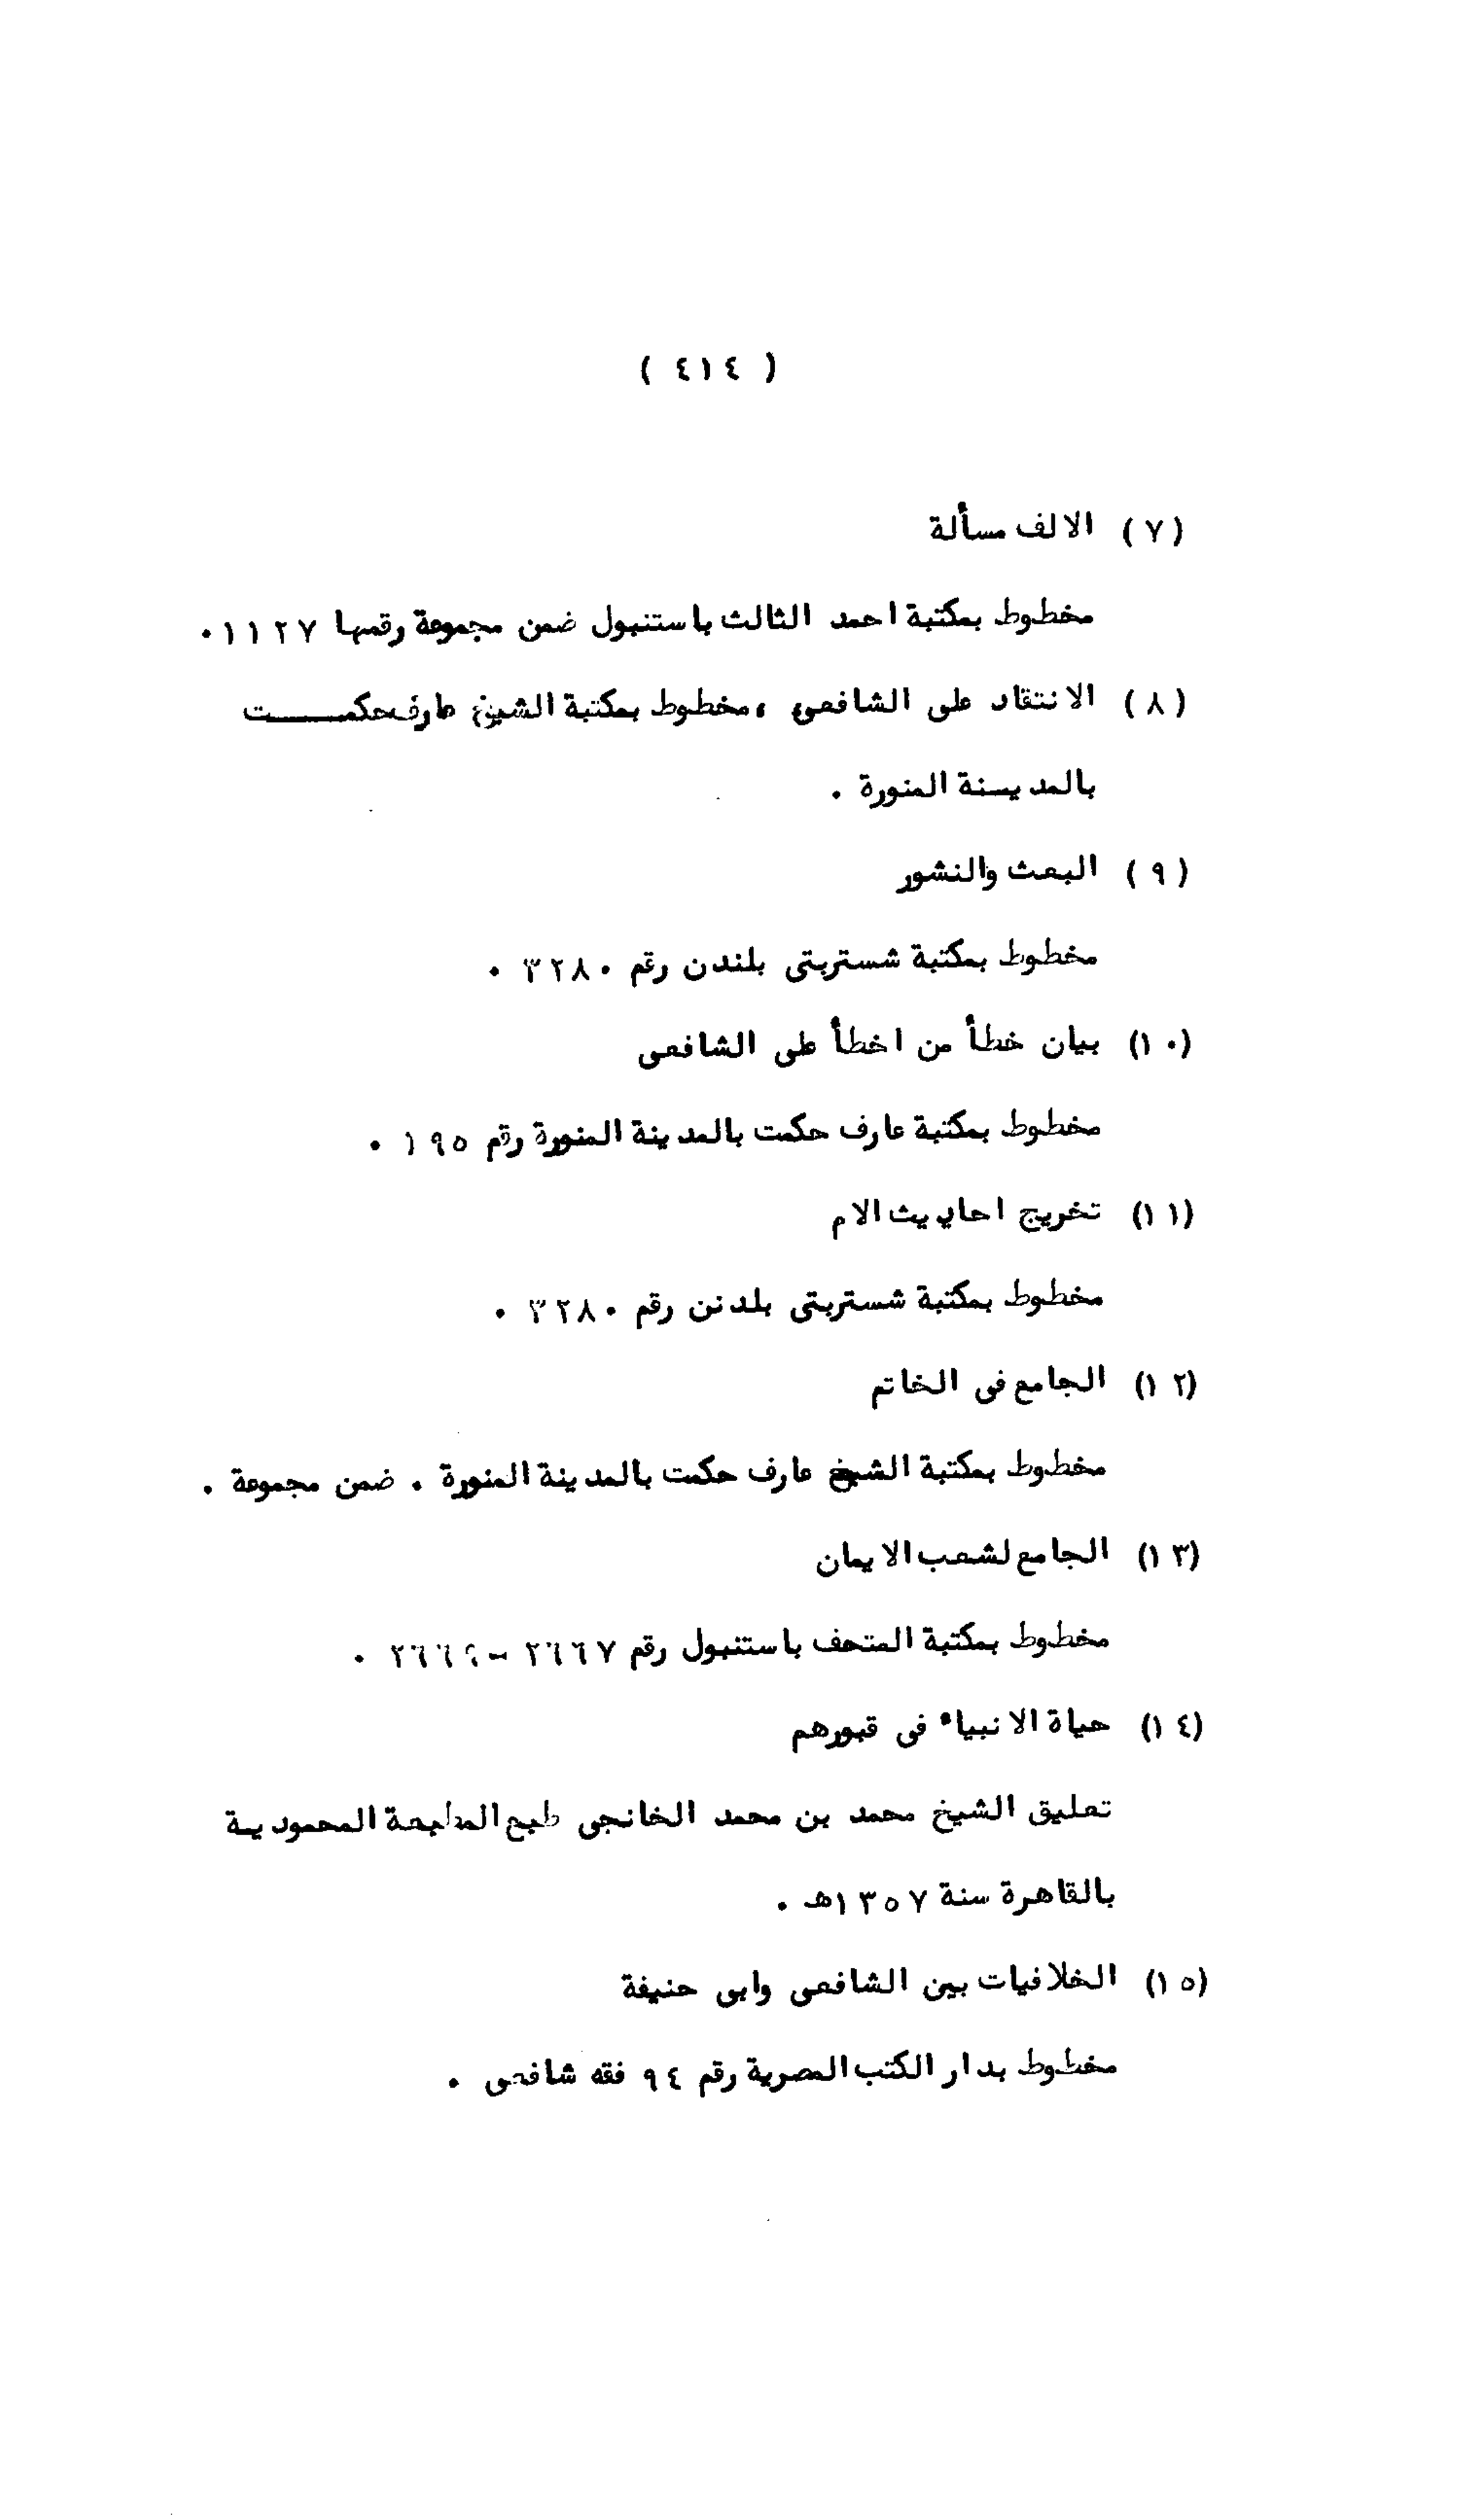 ( ٤١٤ )
(٧) الالف مسألة
مخطوط بمكتبة احمد الثالث باستنبول ضمن مجموعة رقمها ١١٢٧٠
(٨) الانتقاد على الشافعى ،مخطوط بمكتبة الشيخ عارف حكمـــــت
بالمديسنة المنورة ٠
(٩) البعث والنشور
مخطوط بمكتبة شستربتى بلندن رقم ٣٢٨٠ ٠
(١٠) بيان خطأ من اخطأ على الشافعى
مخطوط بمكتبة عارف حكمت بالمدينة المنورة رقم ١٩٥ ٠
(١١) تخريج احاديث الام
مخطوط بمكتبة شستربتى بلدنن رقم ٣٢٨٠ ٠
(١٢) الجامع فى الخاتم
مخطوط بمكتبة الشيخ عارف حكمت بالمدينة المنورة ٠ ضمن مجموعة ٠
(١٣) الجامع لشعب الايمان
مخطوط بمكتبة المتحف باستنبول رقم ٢٦٦٧ -
(١٤) حياة الانبياء فى قبورهم
تعليق الشيخ محمد بن محمد الخانجى طبع المطبعة المحموديـة
بالقاهرة سنة ١٣٥٧هـ ٠
(١٥) الخلافيات بين الشافعى وابى حنيفة
مخطوط بدار الكتب المصرية رقم ٩٤ فقه شافعى ٠